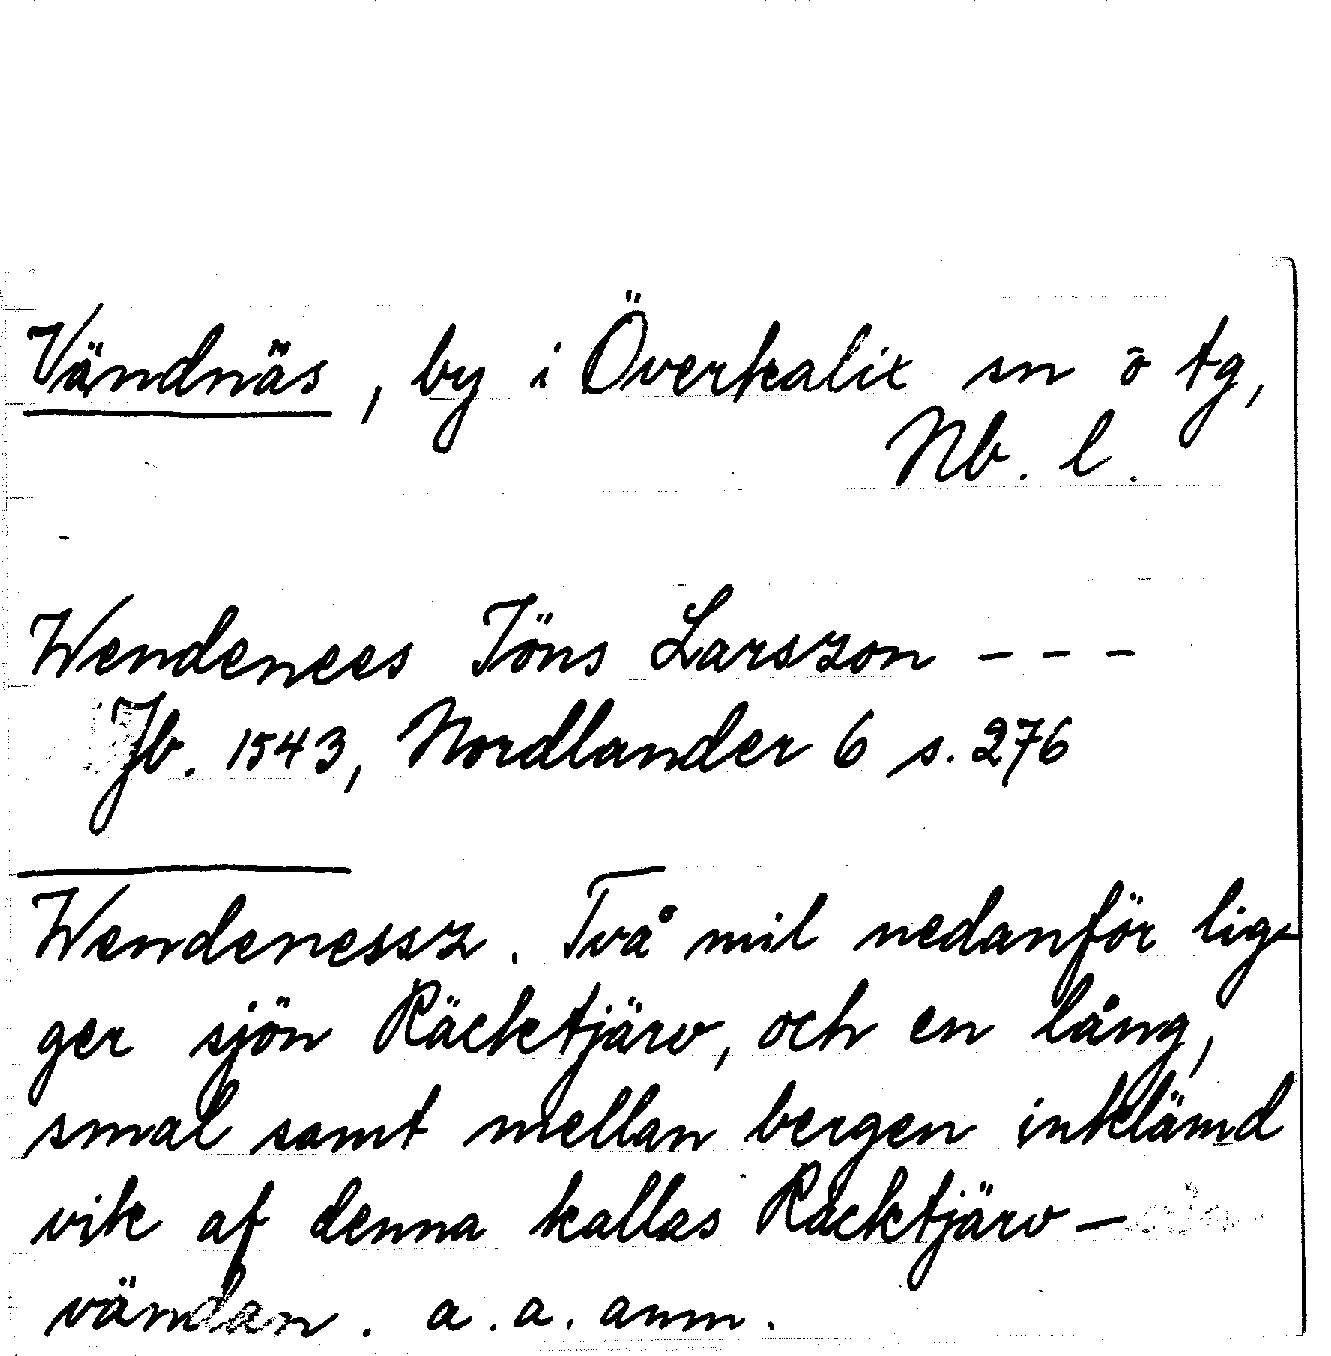 Vändnäs, by i Överkalix sn ö tg,
Nb. l.
Wendenees Jöns Larszon - - -
Jb. 1543, Nordlander 6 s. 276
Wendenessz. Två mil nedanför lig-
ger sjön Räcktjärv, och en lång,
smal samt mellan bergen inklämd
vik af denna kallas Räcktjärv-
vändan. a. a. anm.